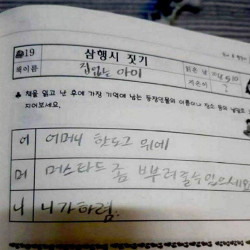 19 삼행시 짓기
책이름 집없는 아이 읽은 날
지은이 ?
♣ 책을 읽고 난 후에 가장 기억에 남는 등장인물의 이름이나 장소 등의 낱말로
지어보세요.
어 어머니 핫도그 위에
머 머스타드좀 뿌려줄수있으세요
니 니가하렴.